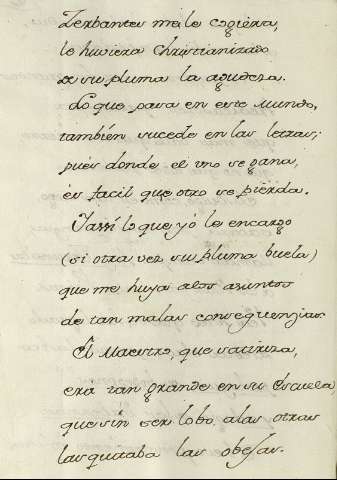 Zerbantes me le cogiera,
le huviera Christianizado
de su pluma la agudeza.
Lo que pasa en este mundo,
también sucede en las letras;
pués donde el uno se gana,
és facil que otro se piérda.
Yassi lo que yò le encargo
(si otra vez su pluma buela)
que me huya a los asuntos
de tan malas consequenzias
Èl Maestro, que satiriza,
era tan grande en su éscuela,
que sin ser lobo, a las otras
las quitaba las obejas.